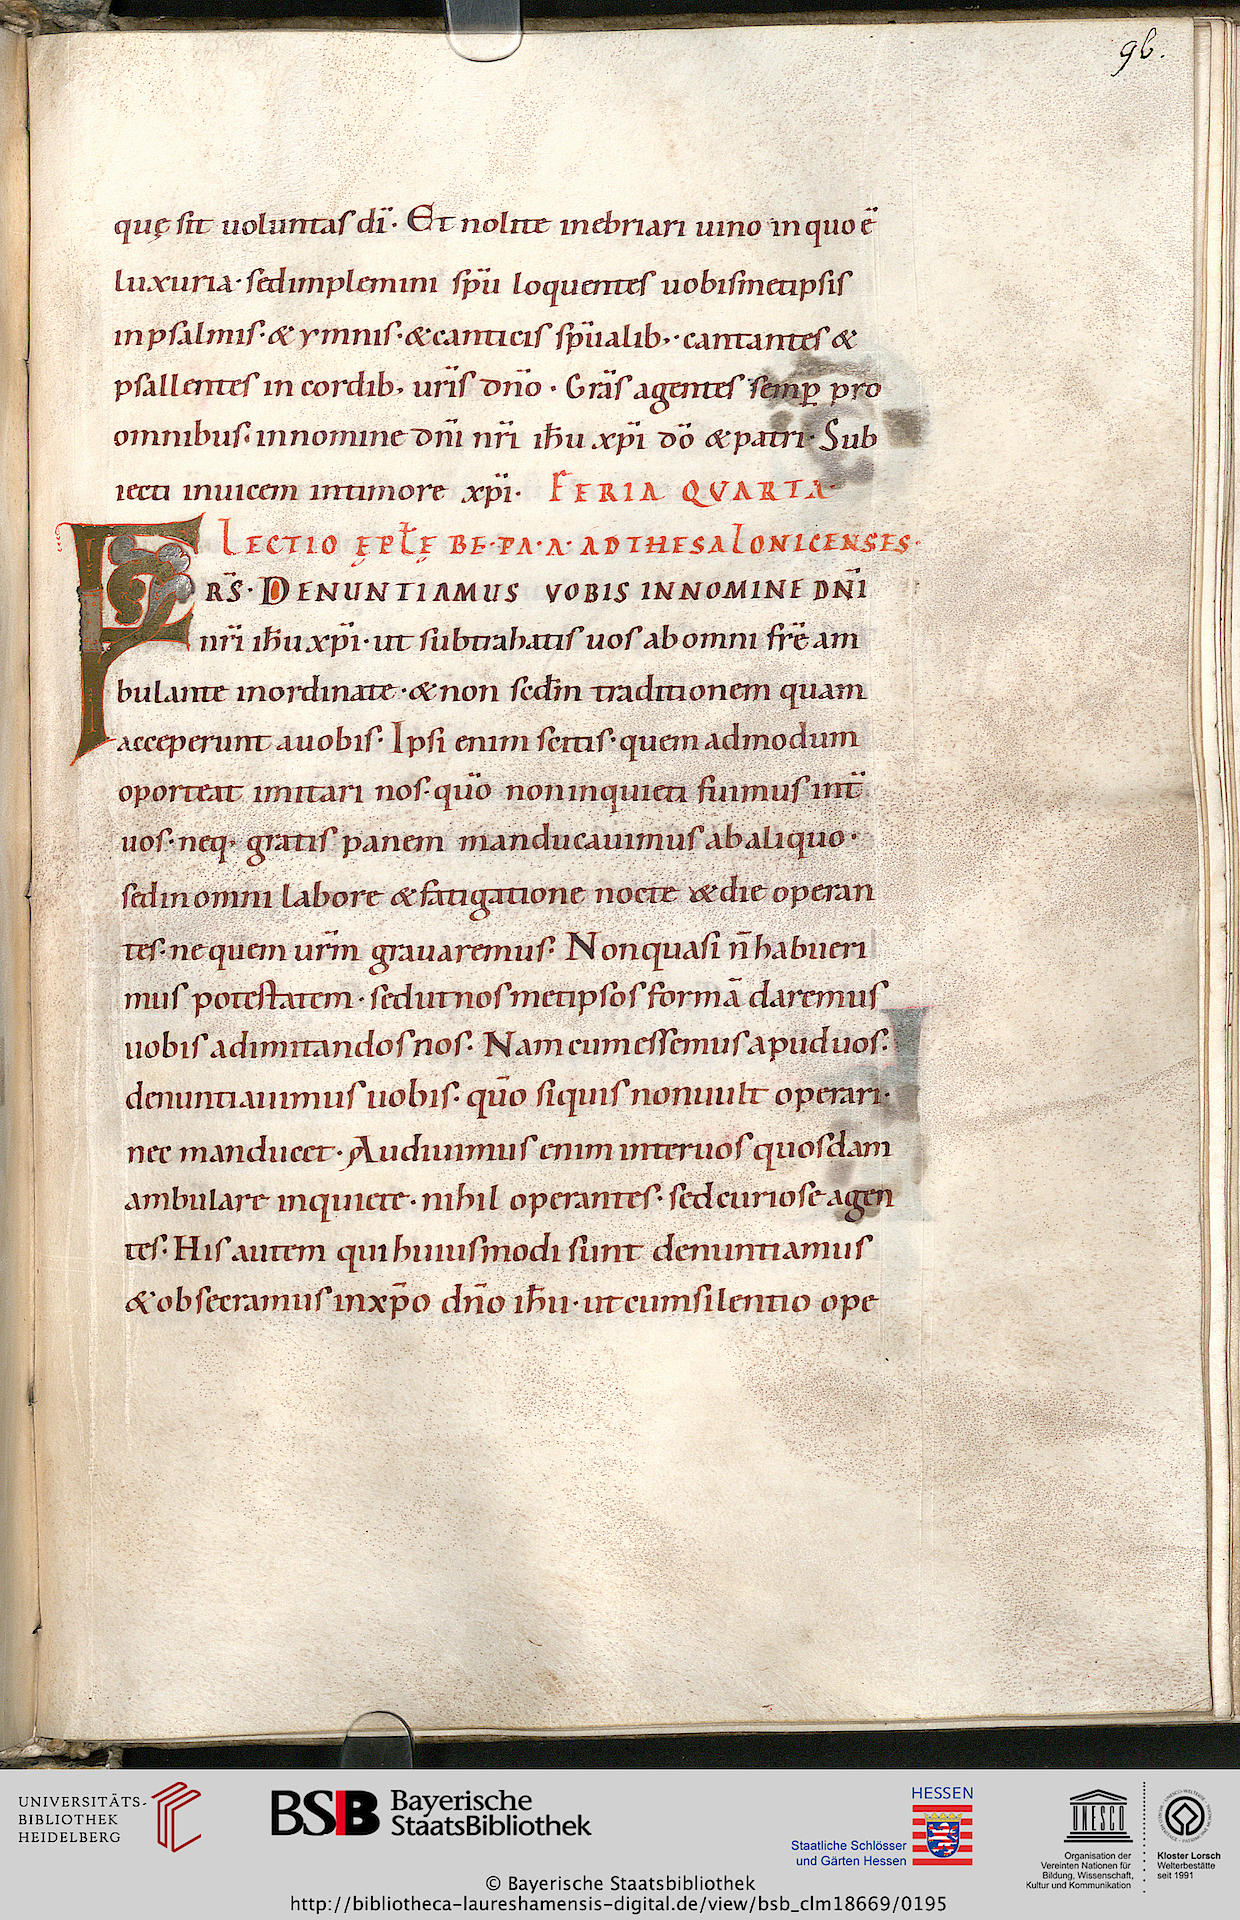 96.
quę sit uoluntas dī. Et nolite inebriari uino in quo ē
luxuria. sed implemini sp̄u loquentes uobismetipsis
in psalmis. & ymnis. & canticis sp̄ualib; cantantes &
psallentes in cordib; ur̄is dn̄o. Gr̄as agentes semp̲ pro
omnibus. in nomine dn̄i nr̄i ih̄u xp̄i dō & patri. Sub
iecti inuicem in timore xp̄i. FERIA QVARTA
LECTIO ĘPŁĘ BE. PA. A. AD THESALONICENSES.
FRS̄. DENUNTIAMUS VOBIS IN NOMINE DN̄I
nr̄i ih̄u xp̄i. ut subtrahatis uos ab omni fr̄e am
bulante inordinate. & non scd̄m traditionem quam
acceperunt a uobis. Ipsi enim scitis. quem admodum
oporteat imitari nos. quō non inquieti fuimus int̄
uos. neq; gratis panem manducauimus ab aliquo.
sed in omni labore & fatigatione nocte & die operan
tes. ne quem ur̄m grauaremus. Non quasi n̄ habueri
mus potestatem. sed ut nos metipsos formā daremus
uobis ad imitandos nos. Nam cum essemus apud uos.
denuntiauimus uobis. quō si quis non uult operari.
nec manducet. Audiuimus enim inter uos quosdam
ambulare inquiete. nihil operantes. sed curiose agen
tes. His autem qui huiusmodi sunt denuntiamus
& obsecramus in xp̄o dn̄o ih̄u. ut cum silentio ope
UNIVERSITÄTS-
BIBLIOTHEK
HEIDELBERG
BSB Bayerische
StaatsBibliothek
HESSEN
Staatliche Schlösser
und Gärten Hessen
UNESCO
Organisation der
Vereinten Nationen für
Bildung, Wissenschaft,
Kultur und Kommunikation
Kloster Lorsch
Welterbestätte
seit 1991
© Bayerische Staatsbibliothek
http://bibliotheca-laureshamensis-digital.de/view/bsb_clm18669/0195